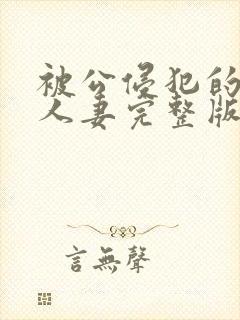 被公侵犯的
人妻完整版
言無聲